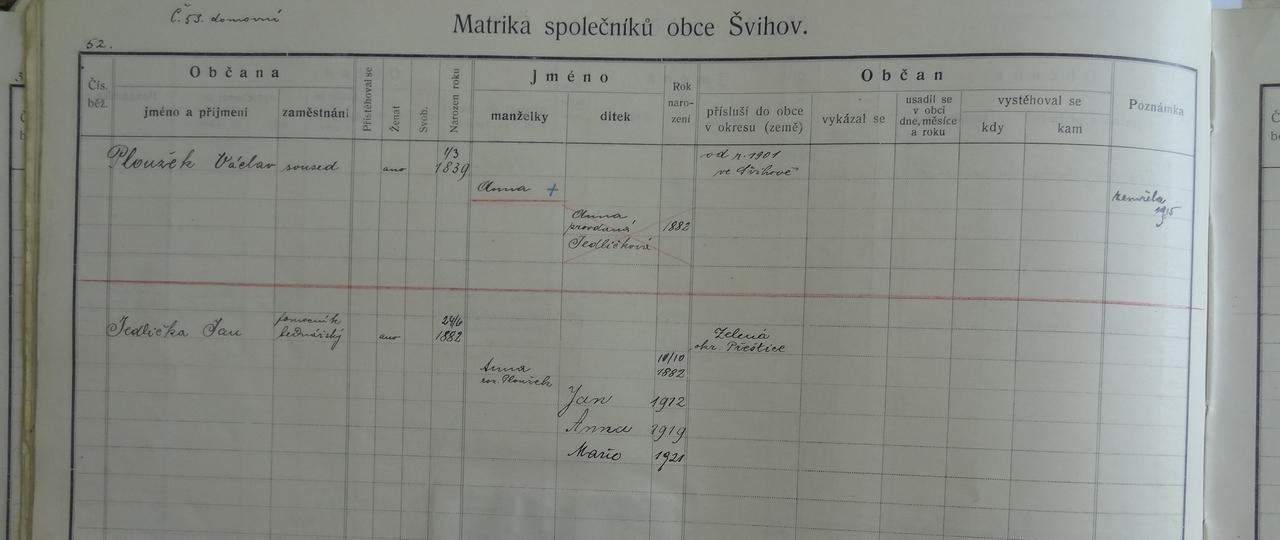 Č. 53. domovní
Matrika společníků obce Švihov.
52.
Čís. běž.
Občana
jméno a příjmení
zaměstnání
Přistěhoval se
Ženat
Svob.
Narozen roku
Jméno
manželky
dítek
Rok naro- zení
Občan
přísluší do obce v okresu (země)
vykázal se
usadil se v obci dne, měsíce a roku
vystěhoval se
kdy
kam
Poznámka
Ploužek Václav soused ano 1/3 1839
od r. 1901
ve Švihově
Anna +
zemřela
1915
Anna
provdaná
Jedličková
1882
Jedlička Jan
pomocník
bednářský
ano
24/6
1882
Zelená
okr. Přeštice
Anna
roz. Ploužek
10/10
1882
Jan 1912
Anna 1919
Marie 1921